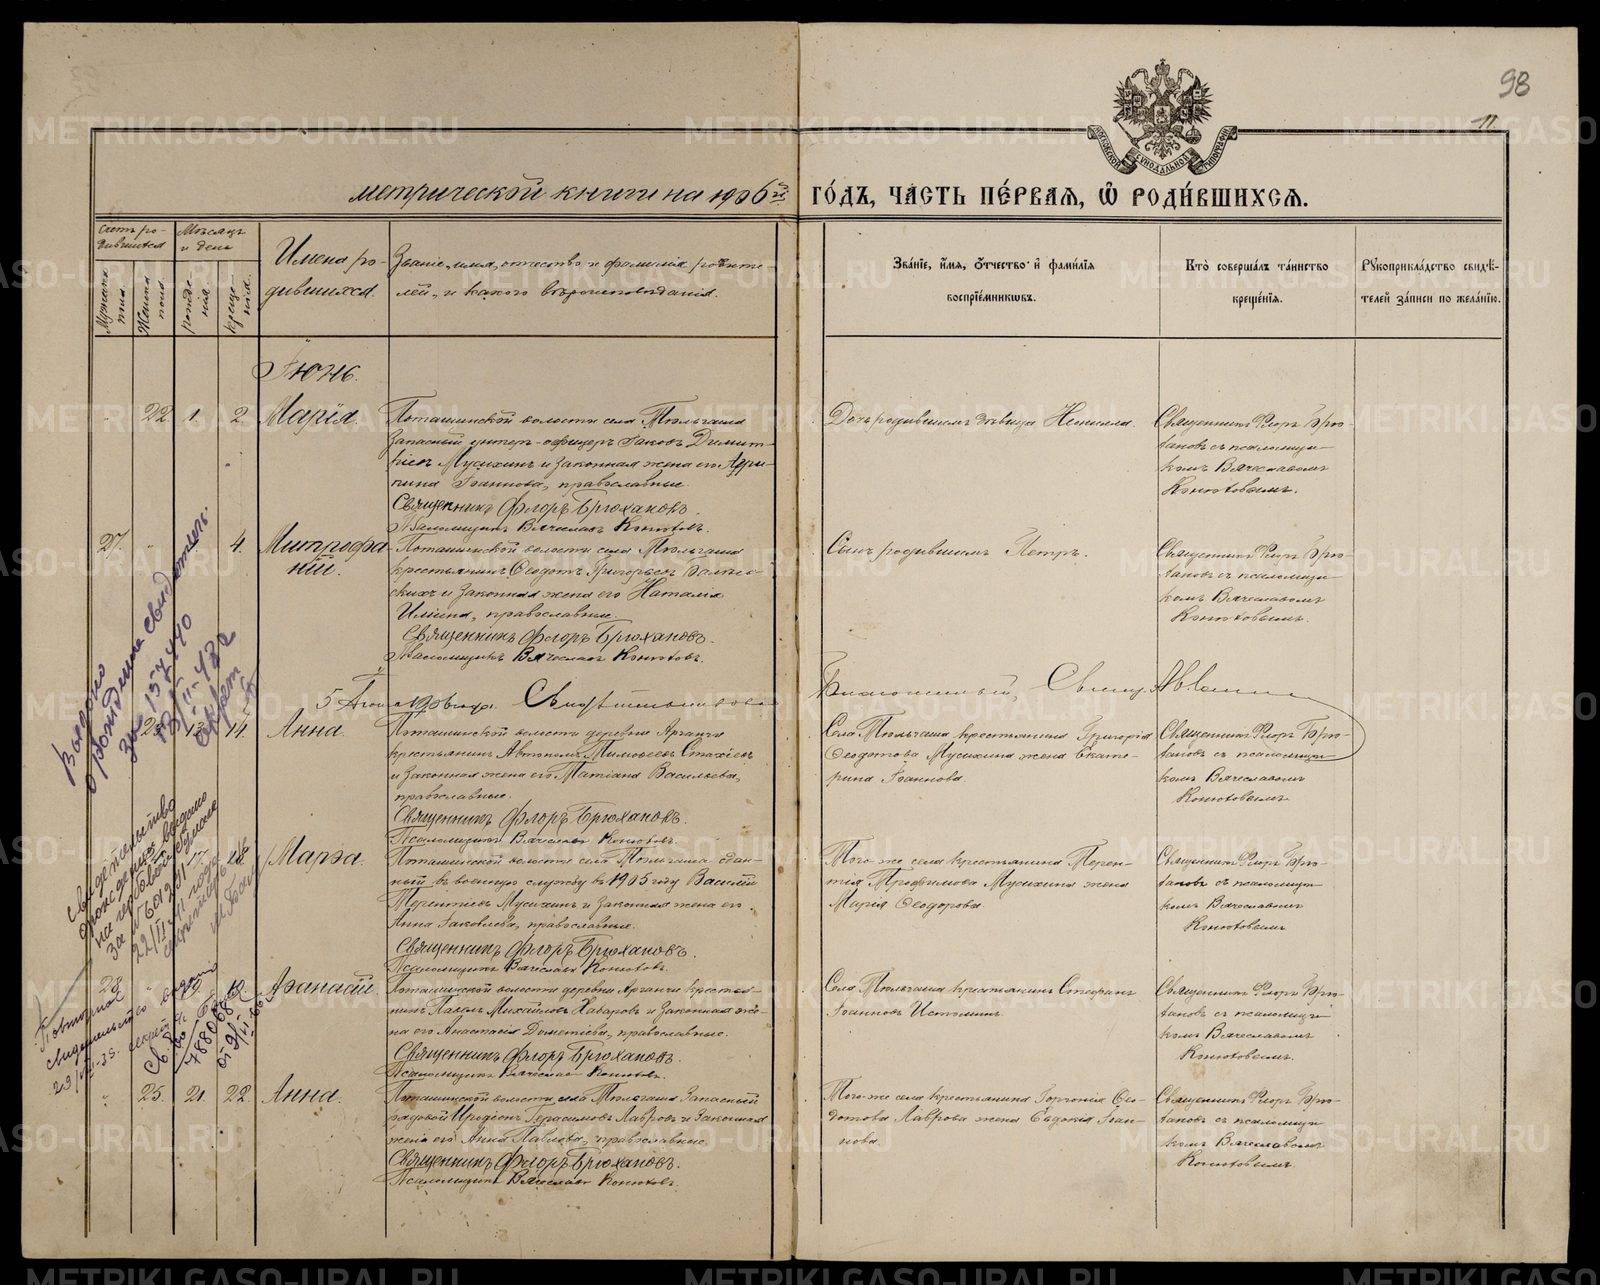 98
11
МОСКОВСКОЙ СѴНОДАЛЬНОЙ ТИПОГРАФІИ
метрической книги на 1906й
го́дъ, ча́сть пе́рвая, ѡ҆ роди́вшихся.
Счетъ ро-
дившихся
Мѣсяцъ
и день
Мужеска
пола.
Женска
пола.
рожде-
нія.
креще-
нія.
Имена ро-
дившихся.
Званіе, имя, отчество и фамилія родите-
лей, и какого вѣроисповѣданія.
Зва́ніе, и҆́мя, ѻ҆́тчество и҆ фами́лія
воспріе́мниковъ.
Кто̀ соверша́лъ та́инство
креще́нія.
Рꙋкоприкла́дство свидѣ́-
телей за́писи по жела́нію.
Іюнь.
22. 1. 2. Марія.
Поташинской волости села Тюльгаша
запасный унтеръ-офицеръ Іаковъ Димит-
ріевъ Мусихинъ и законная жена его Агри-
пина Іоаннова, православные.
Священникъ Флоръ Брюхановъ.
Псаломщикъ Вячеславъ Конюховъ.
Дочь родившимъ дѣвица
Священникъ Флоръ Брю-
хановъ съ псаломщи-
комъ Вячеславомъ
Конюховымъ.
27. 4. Митрофа-
ній.
Поташинской волости села Тюльгаша
крестьянинъ Ѳеодотъ Григорьевъ
и законная жена его Наталія
православные.
Священникъ Флоръ Брюхановъ.
Псаломщикъ Вячеславъ Конюховъ.
Сынъ родившимъ Петръ.
Священникъ Флоръ Брю-
хановъ съ псаломщи-
комъ Вячеславомъ
Конюховымъ.
5 1906 года.
Благочинный, Свящ.
23. 13. 14. Анна.
Поташинской волости деревни Арганчи
крестьянинъ Автономъ Тимоѳеевъ Стахіевъ
и законная жена его Татіана Васильева,
православные.
Священникъ Флоръ Брюхановъ.
Псаломщикъ Вячеславъ Конюховъ.
Села Тюльгаша крестьянина Григорія
Ѳеодотова Мусихина жена Екате-
рина Іоаннова.
Священникъ Флоръ Брю-
хановъ съ псаломщи-
комъ Вячеславомъ
Конюховымъ
Марѳа.
Поташинской волости села Тюльгаша сдан-
ный въ военную службу въ 1905 году Василій
Терентіевъ Мусихинъ и законная жена его
Анна Іаковлева, православные.
Священникъ Флоръ Брюхановъ.
Псаломщикъ Вячеславъ Конюховъ.
Того-же села крестьянина Терен-
тія Трофимова Мусихина жена
Марія Ѳеодорова.
Священникъ Флоръ Брю-
хановъ съ псаломщи-
комъ Вячеславомъ
Конюховымъ
28. Аѳанасій.
Поташинской волости деревни Арганчи крестья-
нинъ Павелъ Михайловъ Хабаровъ и законная же-
на его Анастасія Дометіева, православные.
Священникъ Флоръ Брюхановъ.
Псаломщикъ Вячеславъ Конюховъ.
Села Тюльгаша крестьянинъ Стефанъ
Іоанновъ Истоминъ.
Священникъ Флоръ Брю-
хановъ съ псаломщи-
комъ Вячеславомъ
Конюховымъ.
25. 21. 22. Анна.
Поташинской волости, села Тюльгаша запасный
рядовой Иродіонъ Герасимовъ Лавровъ и законная
жена его Анна Павлова, православные.
Священникъ Флоръ Брюхановъ.
Псаломщикъ Вячеславъ Конюховъ.
Того-же села крестьянина Горгонія Ѳео-
дотова Лаврова жена Евдокія Іоан-
нова.
Священникъ Флоръ Брю-
хановъ съ псаломщи-
комъ Вячеславомъ
Конюховымъ.
Выдано
о рождении свидетель.
за № 157440
Свидетельство
о рождении выдано
на гербовой бумаге
Повторное
свидетельство выдано
METRIKI.GASO-URAL.RU